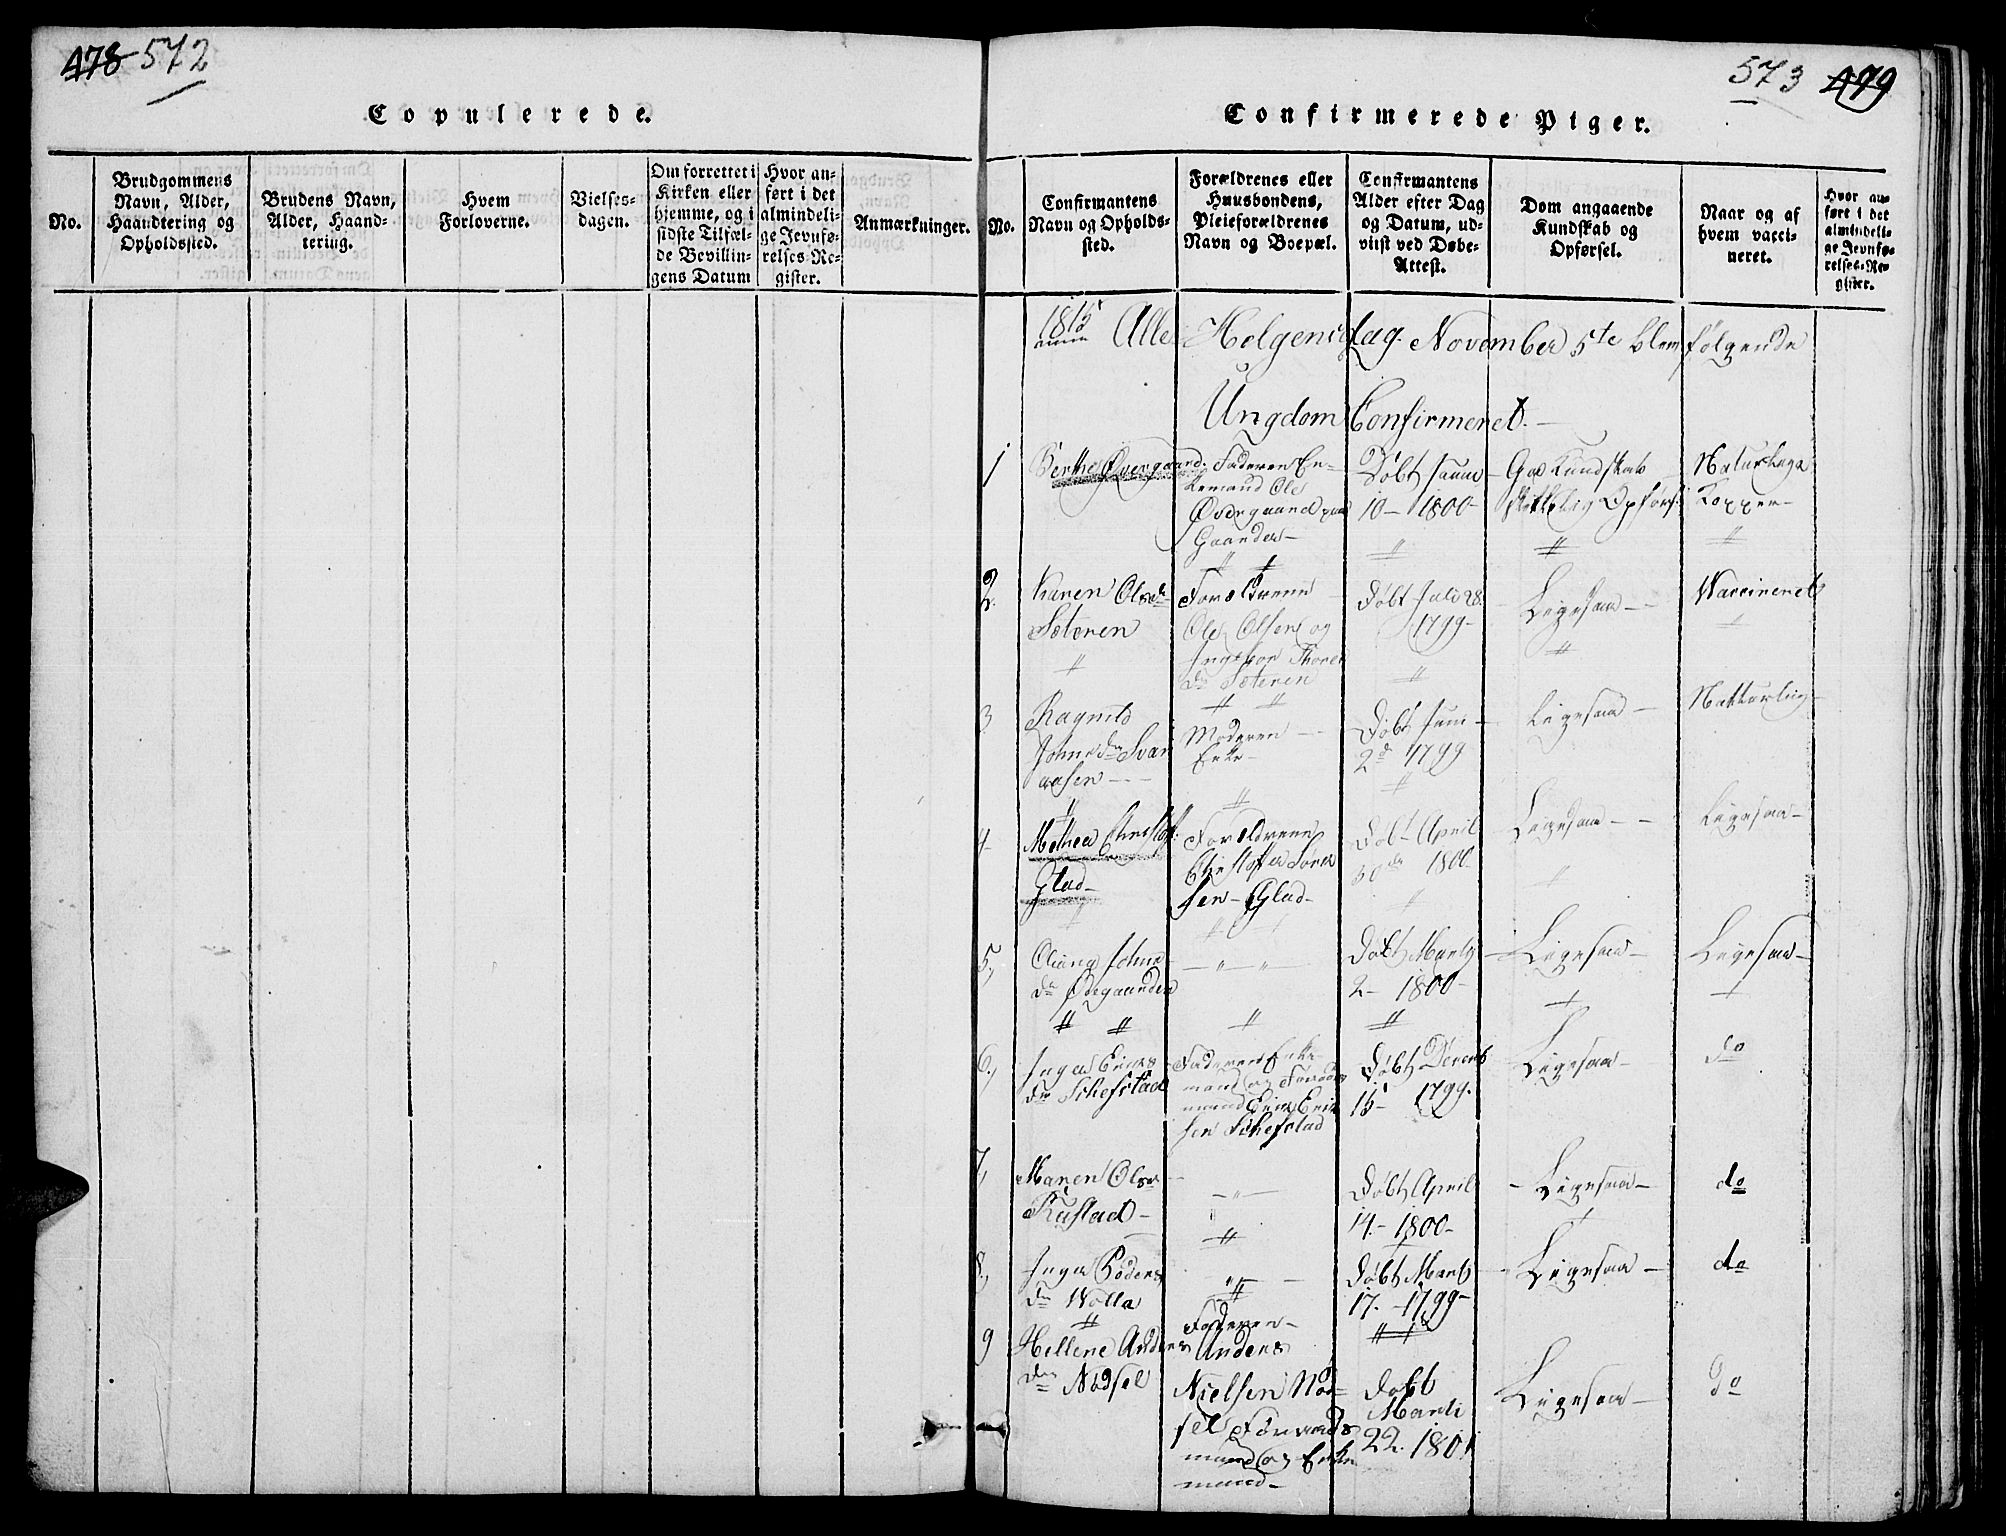 478 572
Copulerede.
No.
Brudgommens
Navn, Alder,
Haandtering og
Opholdssted.
Brudens Navn,
Alder, Haand-
tering.
Hvem
Forloverne.
Vielses-
dagen.
Om forrettet i
Kirken eller
hjemme, og i
sidste Tilfæl-
de Bevillin-
gens Datum
Hvor an-
ført i det
almindeli-
ge Jevnfø-
relses-Re-
gister.
Anmærkninger.
573 479
Confirmerede Piger.
No.
Confirmantens
Navn og Opholds-
sted.
Forældrenes eller
Huusbondens,
Pleieforældrenes
Navn og Boepæl.
Confirmantens
Alder efter Dag
og Datum, ud-
viist ved Døbe-
Attest.
Dom angaaende
Kundskab og
Opførsel.
Naar og af
hvem vacci-
neret.
Hvor an-
ført i det
almindeli-
ge Jevnfø-
relses-Re-
gister.
1815 Alle Helgensdag November 5te blev følgende
Ungdom Confirmeret.
1
Berthe Øvergaard.
Faderen En-
kemand Ole
Øvergaard paa
Gaarden
Døbt
10 - 1800
God Kundskab
skikkelig Opførs:
Naturlige
Kopper
2.
Karen Olsdr
Sæteren
Forældrene
Ole Olsen og
Ingebor Thores
dr Sæteren
Døbt Juli 28.
1799
Ligesaa
Vaccineret
3
Ragnild
Johnsdr Svar
aasen
Moderen
Enke
Døbt Juni
2d 1799
Ligesaa
Natturlig
4
Mathea Christof:
Glad
Forældrene
Christoffer Sören
sen Glad
Døbt April
30de 1800.
Ligesaa
Ligesaa
5,
Johns
dr Ødegaarden
Døbt Marty
2 - 1800
Ligesaa
Ligesaa
6,
Inger Erics
dr Schefstad
Faderen Enke
mand og Forods
mand Eric Eric
sen Schefstad
Døbt Decemb
15 - 1799.
Ligesaa
do
7,
Maren Olsdr
Rustad
Døbt April
14. - 1800
Ligesaa
do
8,
Inger Peders
dr Wolla
Døbt Marty
17. - 1799
Ligesaa
do
9
Hellene Anders
dr Nødsel
Faderen
Anders
Nielsen Nød-
sel Forods
mand og Enke
mand
Døbt
Marti
22. 1801
Ligesaa
do